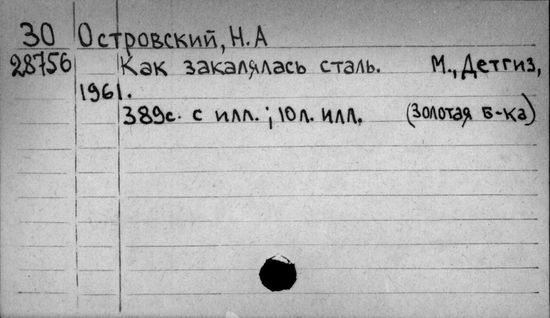 30 Островский, Н.А
28756 Как закалялась сталь. М., Детгиз,
1961.
389с. с илл.; 10л. илл. (Золотая б-ка)